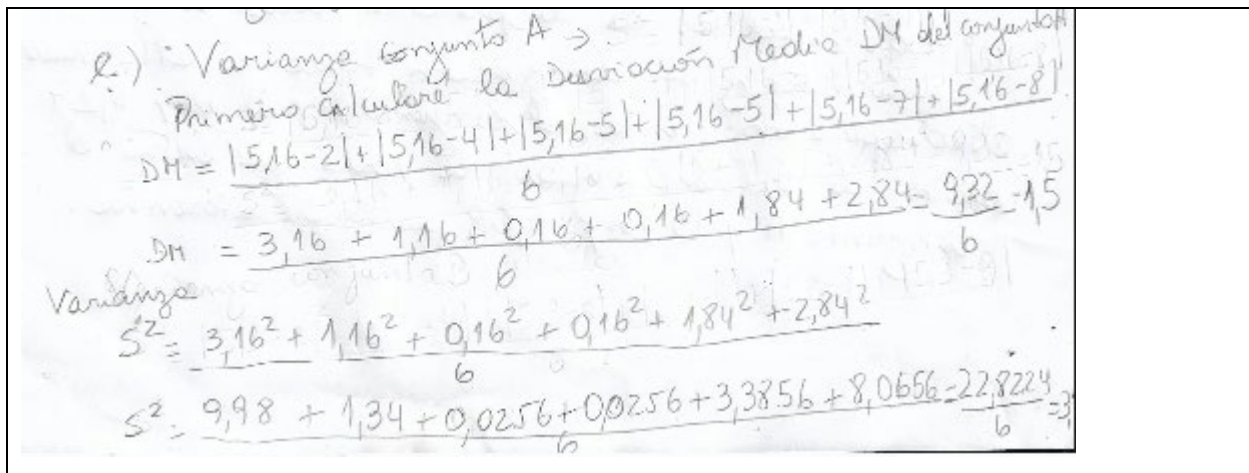 e.) Varianza conjunto A →
Primero calcularé la Desviación Media DM del conjunto A
DM = |5,16-2| + |5,16-4| + |5,16-5| + |5,16-5| + |5,16-7| + |5,16-8|
6
DM = 3,16 + 1,16 + 0,16 + 0,16 + 1,84 + 2,84 = 9,32 = 1,5
6 6
Varianza
S² = 3,16² + 1,16² + 0,16² + 0,16² + 1,84² + 2,84²
6
S² = 9,98 + 1,34 + 0,0256 + 0,0256 + 3,3856 + 8,0656 = 22,8224 = 3,
6 6